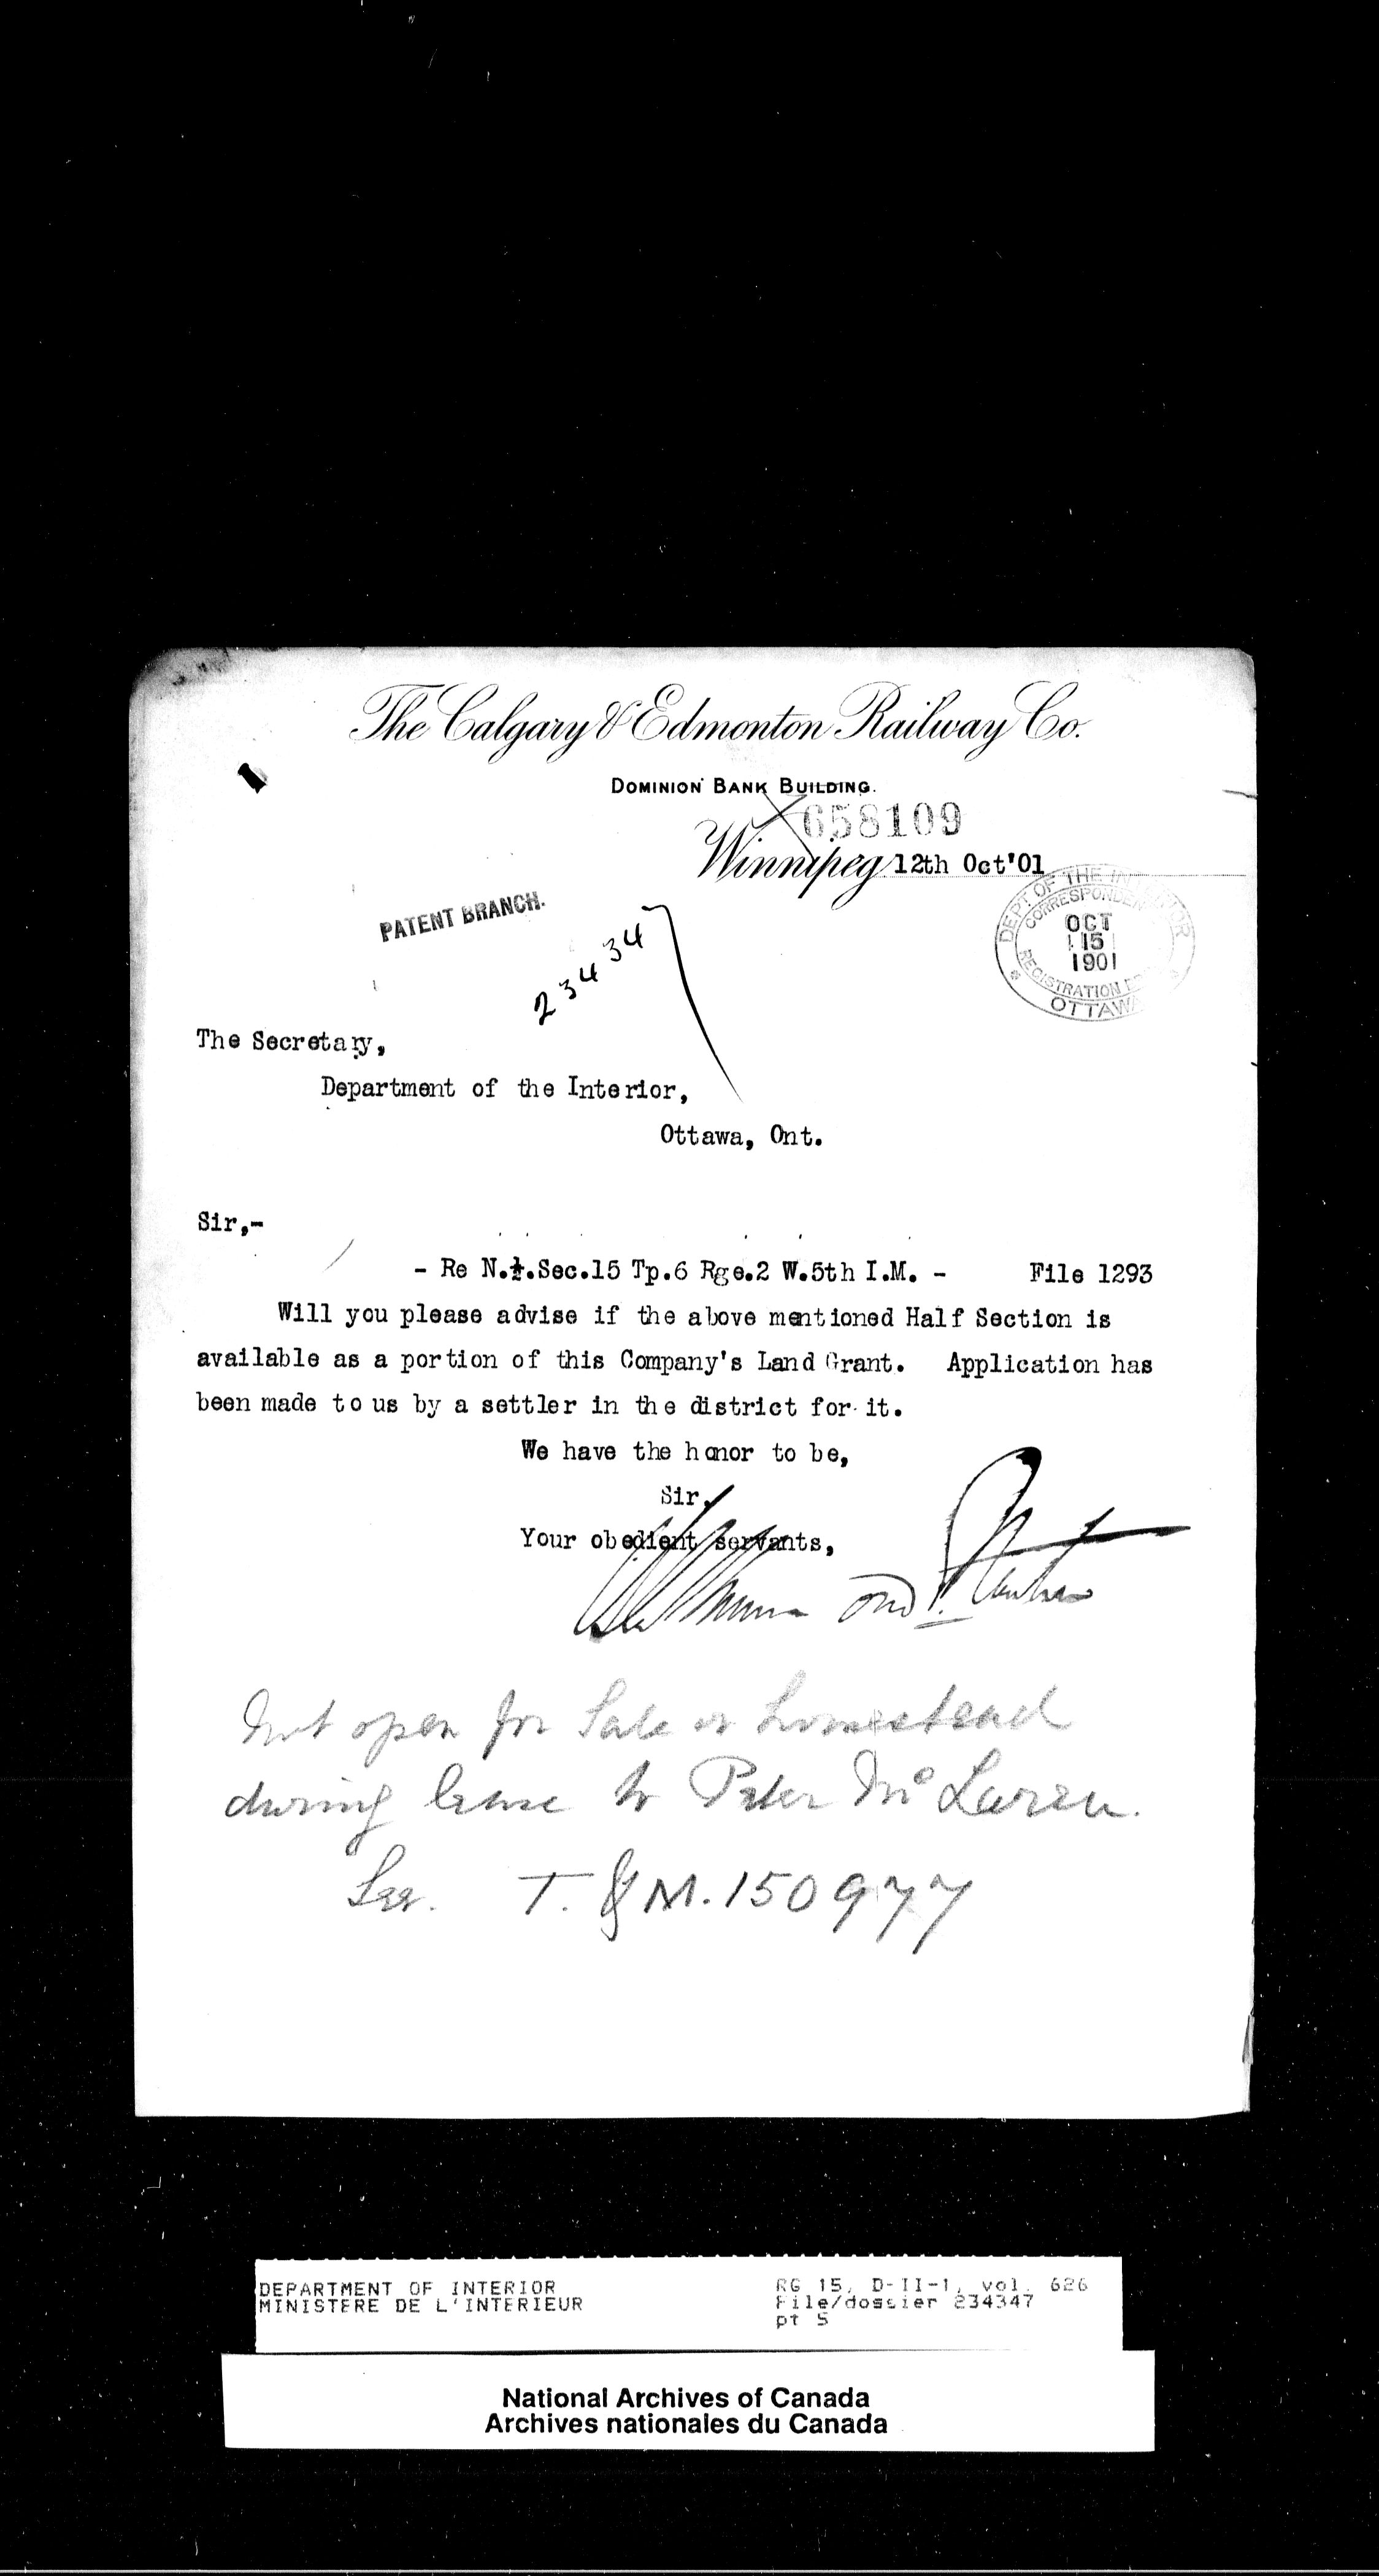 The Calgary & Edmonton Railway Co.
DOMINION BANK BUILDING.
658109
Winnipeg 12th Oct'01
PATENT BRANCH.
234347
DEPT OF THE INTERIOR
CORRESPONDEN
OCT
15
1901
REGISTRATION
OTTAWA
The Secretary,
Department of the Interior,
Ottawa, Ont.
Sir,-
- Re N.½.Sec.15 Tp.6 Rge.2 W.5th I.M. - File 1293
Will you please advise if the above mentioned Half Section is
available as a portion of this Company's Land Grant. Application has
been made to us by a settler in the district for it.
We have the honor to be,
Sir,
Your obedient servants,
and
Not open for Sale or homestead
during lease to Peter McLaren.
See. T. & M. 150977
DEPARTMENT OF INTERIOR
MINISTERE DE L'INTERIEUR
RG 15, D-II-1, vol. 626
File/dossier 234347
pt 5
National Archives of Canada
Archives nationales du Canada